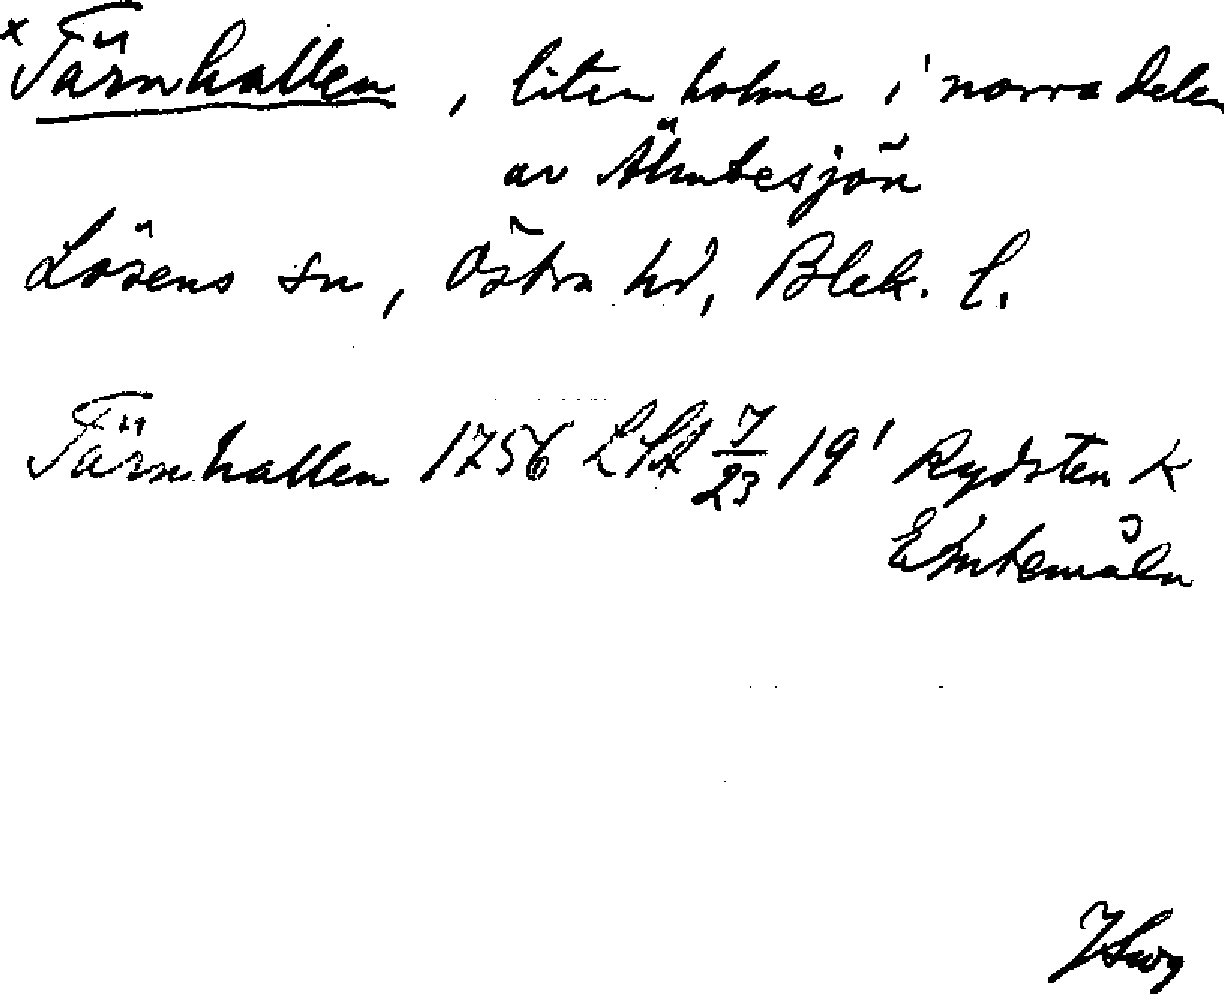 x Tärnhallen, liten holme i norra delen
av Älmtesjön
Lösens sn, Östra hd, Blek. l.
Tärnhallen 1756 LSA 7/23 19' Rydsten k
Elmtemåln